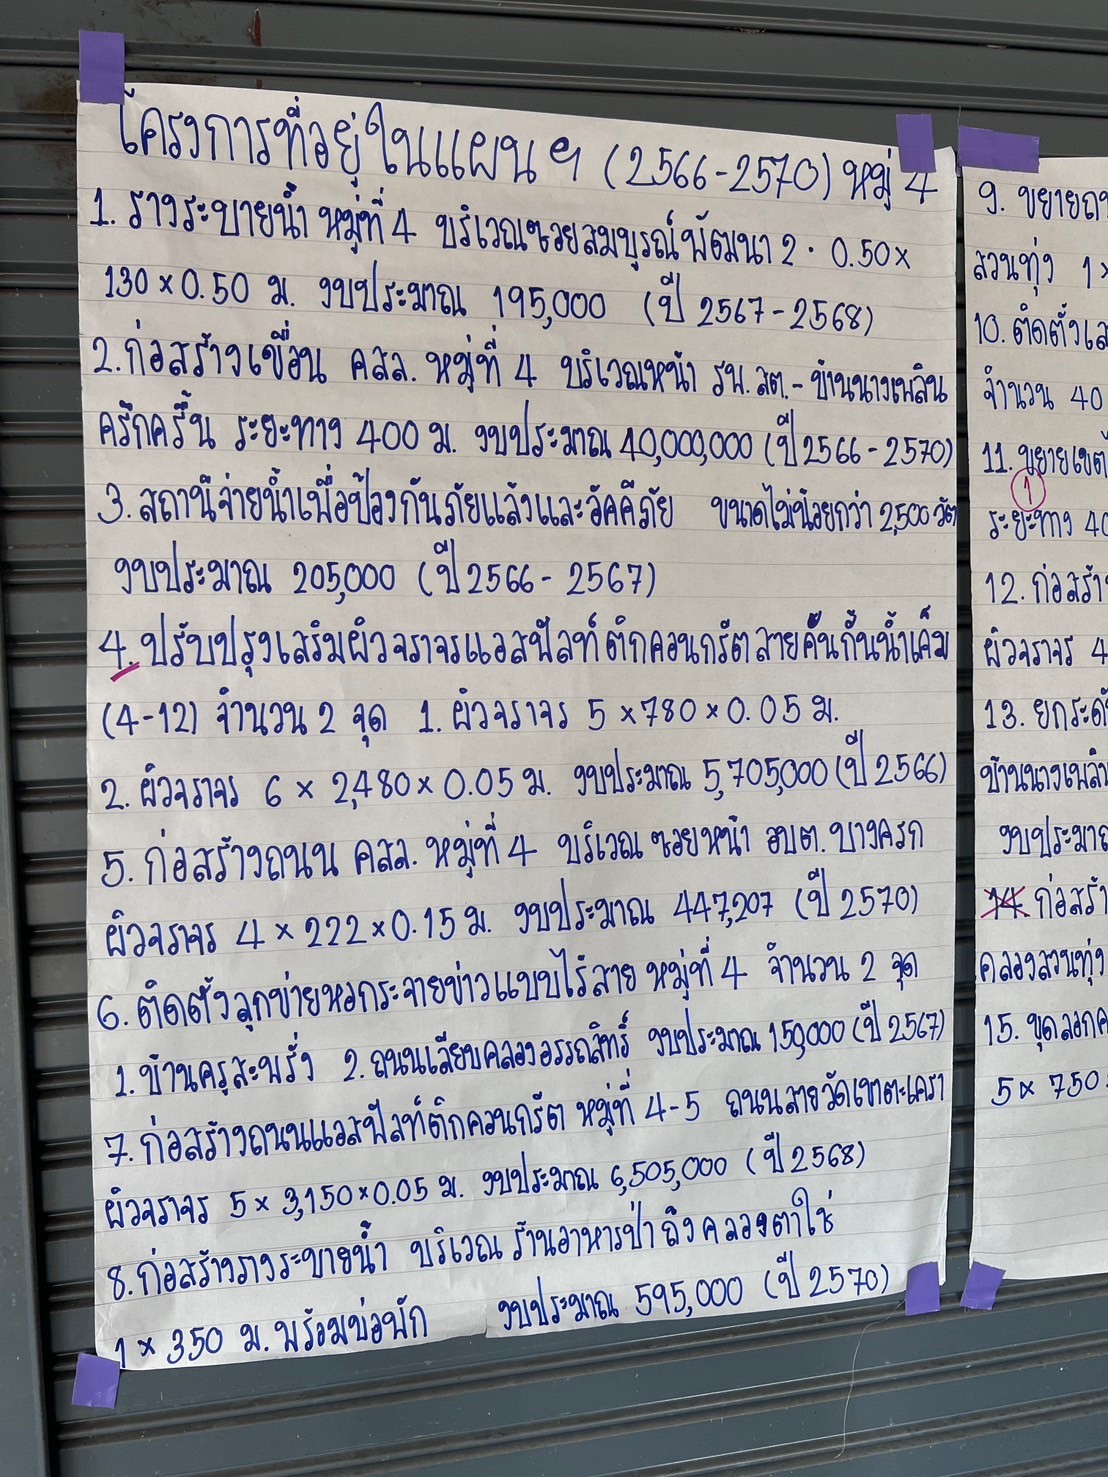 โครงการที่อยู่ในแผนฯ (2566-2570) หมู่ 4
1. รางระบายน้ำ หมู่ที่ 4 บริเวณซอยสมบูรณ์พัฒนา 2 . 0.50 x
130 x 0.50 ม. งบประมาณ 195,000 (ปี 2567-2568)
2. ก่อสร้างเขื่อน คสล. หมู่ที่ 4 บริเวณหน้า รพ.สต. - บ้านนางเพลิน
ครึกครื้น ระยะทาง 400 ม. งบประมาณ 40,000,000 (ปี 2566-2570)
3. สถานีจ่ายน้ำเพื่อป้องกันภัยแล้งและอัคคีภัย ขนาดไม่น้อยกว่า 2,500 วัต
งบประมาณ 205,000 (ปี 2566-2567)
4. ปรับปรุงเสริมผิวจราจรแอสฟัลท์ติกคอนกรีต สายคันกั้นน้ำเค็ม
(4-12) จำนวน 2 จุด 1. ผิวจราจร 5 x 780 x 0.05 ม.
2. ผิวจราจร 6 x 2,480 x 0.05 ม. งบประมาณ 5,705,000 (ปี 2566)
5. ก่อสร้างถนน คสล. หมู่ที่ 4 บริเวณ ซอยหน้า อบต. บางครก
ผิวจราจร 4 x 222 x 0.15 ม. งบประมาณ 447,207 (ปี 2570)
6. ติดตั้งลูกข่ายหอกระจายข่าวแบบไร้สาย หมู่ที่ 4 จำนวน 2 จุด
1. บ้านครูสะพรั่ง 2. ถนนเลียบคลองอรรถสิทธิ์ งบประมาณ 150,000 (ปี 2567)
7. ก่อสร้างถนนแอสฟัลท์ติกคอนกรีต หมู่ที่ 4-5 ถนนสายวัดเขาตะเครา
ผิวจราจร 5 x 3,150 x 0.05 ม. งบประมาณ 6,505,000 (ปี 2568)
8. ก่อสร้างรางระบายน้ำ บริเวณ ร้านอาหารป่า ถึง คลองตาใช่
1 x 350 ม. พร้อมบ่อพัก งบประมาณ 595,000 (ปี 2570)
9. ขยาย
สวนทุ่ง 1 x
10. ติดตั้ง
จำนวน 40
11. ขยายเขต
1
ระยะทาง 40
12. ก่อสร้าง
ผิวจราจร 4
13. ยกระดับ
บ้านนางเพลิน
งบประมาณ
14. ก่อสร้า
คลองสวนทุ่ง
15. ขุดลอกค
5 x 750